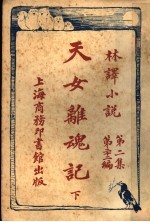 林譯小說
第二集
第三十三編
天女離魂記
下
上海商務印書館出版